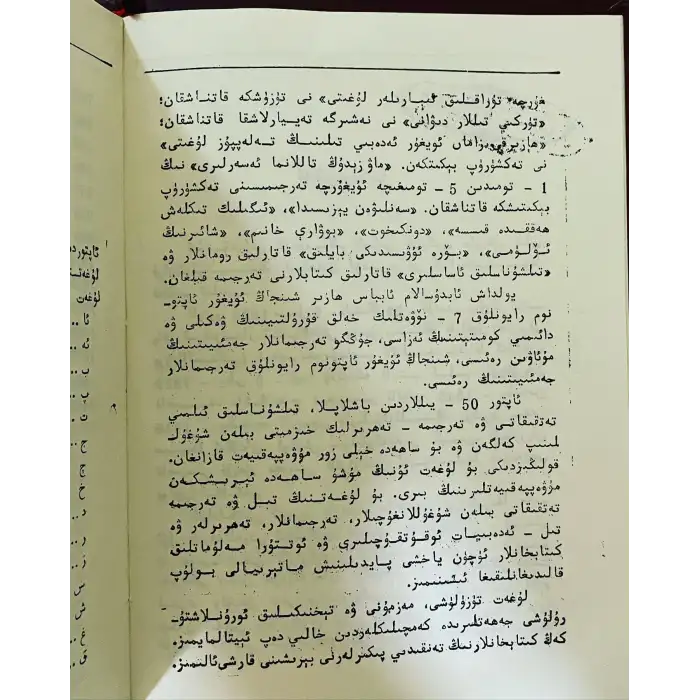 غۇرچە تۇراقلىق ئىبارىلەر لۇغىتى» نى تۈزۈشكە قاتناشقان؛
«تۈركىي تىللار دىۋانى» نى نەشىرگە تەييارلاشقا قاتناشقان؛
«ھازىرقى زامان ئۇيغۇر ئەدەبىي تىلىنىڭ تەلەپپۇز لۇغىتى»
نى تەكشۈرۈپ بېكىتكەن. «ماۋزېدۇڭ تاللانما ئەسەرلىرى» نىڭ
1 - تومىدىن 5 - تومىغىچە ئۇيغۇرچە تەرجىمىسىنى تەكشۈرۈپ
بېكىتىشكە قاتناشقان. «سەنلىۋەن يېزىسىدا»، «ئىگىلىك تىكلەش
ھەققىدە قىسسە»، «دونكىخوت»، «بوۋارى خانىم»، «شائىرنىڭ
ئۆلۈمى»، «بۆرە ئۇۋىسىدىكى بايلىق» قاتارلىق رومانلار ۋە
«تىلشۇناسلىق ئاساسلىرى» قاتارلىق كىتابلارنى تەرجىمە قىلغان.
يولداش ئابدۇسالام ئابباس ھازىر شىنجاڭ ئۇيغۇر ئاپتو-
نوم رايونلۇق 7 - نۆۋەتلىك خەلق قۇرۇلتىيىنىڭ ۋەكىلى ۋە
دائىمىي كومىتېتىنىڭ ئەزاسى، جۇڭگو تەرجىمانلار جەمئىيىتىنىڭ
مۇئاۋىن رەئىسى، شىنجاڭ ئۇيغۇر ئاپتونوم رايونلۇق تەرجىمانلار
جەمئىيىتىنىڭ رەئىسى.
ئاپتور 50 - يىللاردىن باشلاپلا، تىلشۇناسلىق ئىلمىي
تەتقىقاتى ۋە تەرجىمە - تەھرىرلىك خىزمىتى بىلەن شۇغۇل-
لىنىپ كەلگەن ۋە بۇ ساھەدە خېلى زور مۇۋەپپەقىيەت قازانغان.
قولىڭىزدىكى بۇ لۇغەت ئۇنىڭ مۇشۇ ساھەدە ئېرىشكەن
مۇۋەپپەقىيەتلىرىنىڭ بىرى. بۇ لۇغەتنىڭ تىل ۋە تەرجىمە
تەتقىقاتى بىلەن شۇغۇللانغۇچىلار، تەرجىمانلار، تەھرىرلەر ۋە
تىل - ئەدەبىيات ئوقۇتقۇچىلىرى ۋە ئوتتۇرا مەلۇماتلىق
كىتابخانلار ئۈچۈن ياخشى پايدىلىنىش ماتېرىيالى بولۇپ
قالىدىغانلىقىغا ئىشىنىمىز.
لۇغەت تۈزۈلۈشى، مەزمۇنى ۋە تېخنىكىلىق ئورۇنلاشتۇ-
رۇلۇشى جەھەتلىرىدە كەمچىلىكلەردىن خالىي دەپ ئېيتالمايمىز.
كەڭ كىتابخانلارنىڭ تەنقىدىي پىكىرلەرنى بېرىشىنى قارشى ئالىمىز.
لۇغەت
ئا ..
ئە ..
ب ..
پ ..
ت ..
ج ..
چ
خ
د ..
ر ..
ز ..
س
ش
غ ..
ق ..